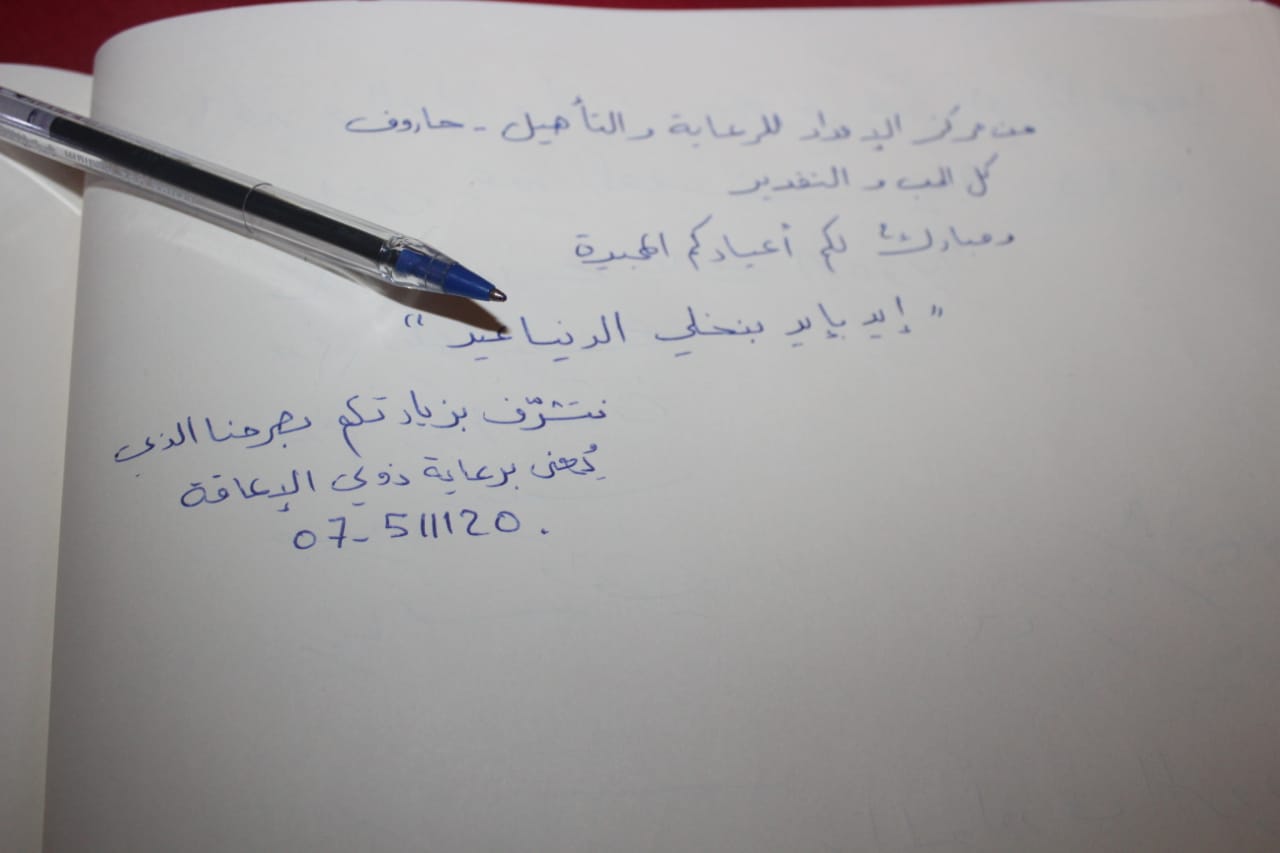 من مركز الإمداد للرعاية والتأهيل - حاروف
كل الحب والتقدير
ومبارك لكم أعيادكم المجيدة
"إيد بإيد بنخلي الدنيا عيد"
نتشرّف بزيارتكم بصرحنا الذي
يُعنى برعاية ذوي الإعاقة
07-511120.